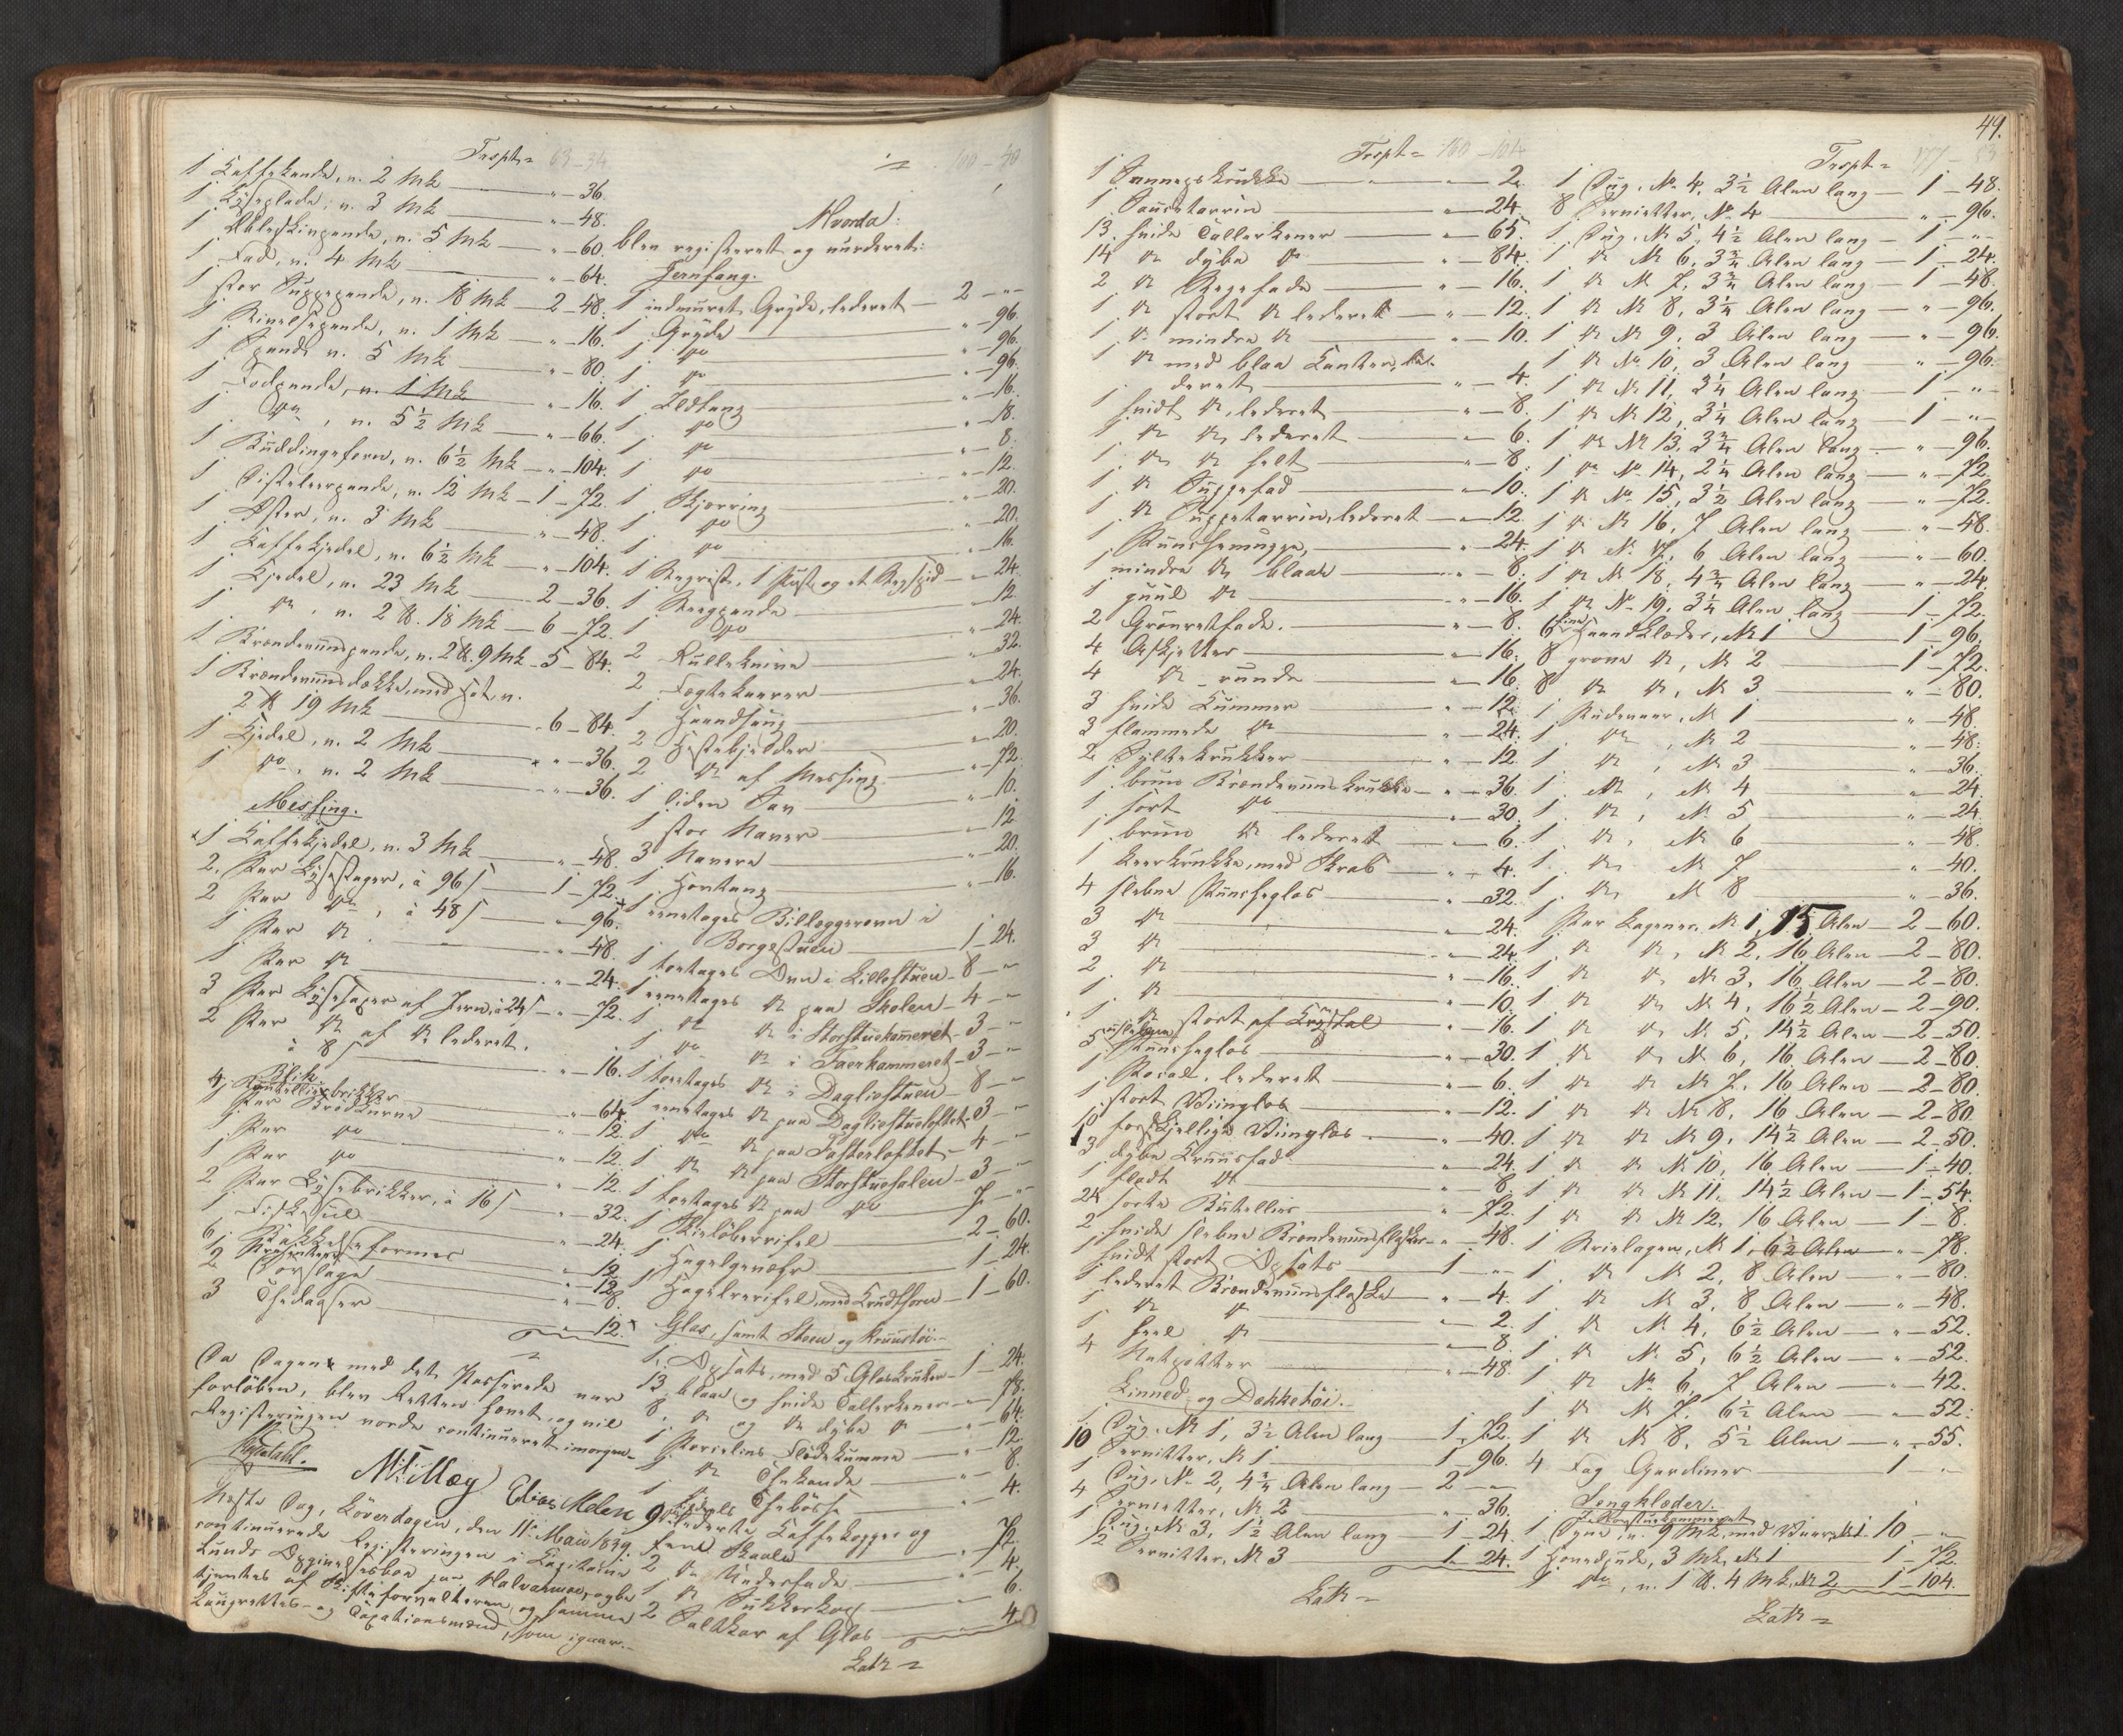 Trspt= 63-34
1 Kaffekande, v. 2 Mk — " — 36.
1 Lyseplade, v. 3 Mk — " — 48.
1 Æbleskivpande, v. 5 Mk — " — 60.
1 Fad, v. 4 Mk — " — 64.
1 stor Suppepande, v. 18 Mk — 2 — 48.
1 v. 1 Mk — " — 16.
1 Spand v. 5 Mk — " — 80.
1 Fodpande, v. 1 Mk — " — 16.
1 do, v. 5½ Mk — " — 66.
1 Buddingeform, v. 6½ Mk — " — 104.
1 Disteleerpande, v. 12 Mk — 1 — 72.
1 Øster, v. 3 Mk — " — 48.
1 Kaffekjedel, v. 6½ Mk — " — 104.
1 Kjedel, v. 23 Mk — 2 — 36.
1 do, v. 2 ℔. 18 Mk — 6 — 72.
1 Brændeviinspande, v. 2 ℔. 9 Mk — 5 — 84.
1 Brændeviinsdække, med Hat v.
2 ℔ 19 Mk — 6 — 84.
1 Kjedel, v. 2 Mk — " — 36.
1 do, v. 2 Mk — " — 36.
Messing.
1 Kaffekjedel, v. 3 Mk — " — 48.
2. Par Lysestager, à 96 s — 1 — 72.
2 Par do, à 48 s — " — 96.
1 Par do — " — 48.
1 Par do — " — 24.
3 Par Lysesaxer af Jern, à 24 s — " — 72.
2 Par do af do lederet.
à 8 s — " — 16.
Blik.
4 Bouteillebrikker — " — 64.
1 Par Brødkurve — " — 12.
1 Par do — " — 12.
1 Par do — " — 12.
2 Par Lysebrikker, à 16 s — " — 32.
1 Fiskesiil — " — 24.
6 Bakkelseformer — " — 12.
1 Presenteer — " — 12.
2 Dørslage — " — 8.
3 Thedaaser — " — 12.
Da Dagen med det Passerede var
forløben, blev Retten hævet, og vil
Registeringen vorde continueret imorgen.
Rosendahl. N. Moy Elias Melen
Næste Dag, Løverdagen, den 11te Mai 1839.
continuerede Registeringen i Capitaine
Lunds Opsynelsesboe paa Malvarmoe, og be-
tjentes af Skifteforvalteren og samme
Laugrettes- og Taxationsmænd, som igaar.
100 — 40
Hvorda:
blev registeret og vurderet:
Jernfang.
1 indmuret Gryde, lederet — 2 — "
1 Gryde — " — 96.
1 do — " — 96.
1 do — " — 96.
1 Ildtang — " — 16.
1 do — " — 18.
1 do — " — 8.
1 do — " — 12.
1 Skjærring — " — 20.
1 do — " — 20.
1 do — " — 16.
1 Bagrist, 1 Rust og et Bagspid — " — 24.
1 Bragpande — " — 12.
1 do — " — 24.
2 Rulleknive — " — 32.
2 Fogtekaarer — " — 24.
1 Haandsaug — " — 36.
2 Hestebjelder — " — 20.
2 do af Messing — " — 72.
1 liden Sav — " — 10.
1 stor Naver — " — 12
3 Navere — " — 20.
1 Hovtang — " — 16.
1 eenetages Bilæggerovn i
Borgestuen — 1 — 24.
1 toetages Ovn i Lillestuen — 8 — "
1 eenetages do paa Skolen — 4 — "
1 do do i Storstuekameret — 3 — "
1 do do i Faerkammeret — 3 — "
1 toetages do i Dagliestuen — 8 — "
1 eenetages do paa Dagliestueloftet — 3 — "
1 do do paa Søsterloftet — 4 — "
1 do do paa Storstuesalen — 3 — "
1 toetages do paa do — 7 — "
1 Skieløberrifel — 2 — 60.
1 Hagelgevæhr — 1 — 24.
1 Hagelrerifel, med Krudthorn — 1 — 60.
Glas, samt Steen og Kruustøi.
1. Opsats, med 5 Glaskrukker — 1 — 24.
13 blaa og hvide Tallerkener — " — 78.
8 do og do dybe do — " — 64.
1 Porcelins Flødekumme — " — 12.
1 do Thekande — " — 8.
1 lederets Thebøsse — " — 4.
9 par lederte Kaffekopper og
feml Skaale — " — 72.
2 do Underfade — " — 4.
1 do Sukkerkop — " — 6.
2 Saltkar af Glas — " — 4.
Lats =
49.
Trspt= 100 — 104
1 Sennepskrukke — " — 2.
1. Saucetarrin — " — 24.
13. hvide Tallerkener — " — 65.
14 do dybe do — " — 84.
2 do Stegefade — " — 16.
1 do stort do lederet — " — 12.
1 do mindre do — " — 10.
1 do med blaa Kanter, le-
deret — " — 4.
1 hvidt do, lederet — " — 8.
1 do do, lederet — " — 6.
1 do do helt — " — 8.
1 do Suppefad — " — 10.
1 do Suppetarrin, lederet — " — 12.
1 Punschemugge, — " — 24.
1 mindre do blaae — " — 8.
1 guul do — " — 16.
2 Grønretfade. — " — 8.
4 Asjetter — " — 16.
4 do runde — " — 16.
3 hvide Kummer — " — 12.
3 flammede do — " — 24.
2 Syltekrukker — " — 12.
1 bruun Brændeviinskrukke — " — 36.
1 sort do — " — 30.
1 bruun do lederet — " — 6.
1 Leerkrukke, med Skrab — " — 4.
4 slebne Punscheglas — " — 32.
3 do — " — 24.
3 do — " — 24.
2 do — " — 16.
1 do — " — 10.
1 do stort af Krystal — " — 16.
5 uslebne Punscheglas — " — 30.
1 Pocal, lederet — " — 6.
1 stort Viinglas — " — 12.
10 forskjellige Viinglas — " — 40.
3 dybe Kruusfad — " — 24.
1 fladt do — " — 8.
24 sorte Buteller — " — 72.
2 hvide slebne Brændeviinsflasker — " — 48.
1 hvidt stort Opsats — 1 — "
1 lederet Brændeviinsflaske — " — 4.
1 do do — " — 2.
1 heel do — " — 8.
4 Natpotter — " — 48.
Linned og Dækketøi.
1 Dug, No 1, 3½ Alen lang — 1 — 72.
10 Servietter, No 1 — 1 — 96.
1 Dug, No 2, 4¾ Alen lang — 2 — "
4 Servietter, No 2 — " — 36.
1 Dug, No 3, 1½ Alen lang — 1 — 24.
12 Servietter, No 3 — 1 — 24.
Lats =
Trspt=
1 Dug, No 4, 3½ Alen lang — 1 — 48.
8 Servietter, No 4 — " — 96.
1 Dug, No 5, 4½ Alen lang — 1 — "
1 do No 6, 3¾ Alen lang — 1 — 24.
1 do No 7, 3¾ Alen lang — 1 — 48.
1 do No 8, 3¼ Alen lang — " — 96.
1 do No 9, 3 Alen lang — " — 96.
1 do No 10, 3 Alen lang — " — 96.
1 do No 11, 3¼ Alen lang — 1 — "
1 do No 12, 3¼ Alen lang — 1 — "
1 do No 13, 3¾ Alen lang — " — 96.
1 do No 14, 2¼ Alen lang — " — 72.
1 do No 15, 3½ Alen lang — " — 72.
1 do No 16, 7 Alen lang — " — 48.
1 do No 17, 6 Alen lang — " — 60.
1 do No 18, 4¾ Alen lang — " — 24.
1 do No 19, 3¼ Alen lang — 1 — 72.
6 fine Haandklæder, No 1 — 1 — 96.
8 grove do, No 2 — 1 — 72.
8 do do, No 3 — " — 80.
1 Pudevaar, No 1 — " — 48.
1 do, No 2 — " — 48.
1 do, No 3 — " — 36.
1 do, No 4 — " — 24.
1 do, No 5 — " — 24.
1 do, No 6 — " — 48.
1 do No 7 — " — 40.
1 do, No 8 — " — 36.
1 Par Lagener, No 1, 15 Alen — 2 — 60.
1 do do, No 2, 16 Alen — 2 — 80.
1 do do, No 3, 16 Alen — 2 — 80.
1 do do No 4, 16½ Alen — 2 — 90.
1 do do, No 5, 14½ Alen — 2 — 50.
1 do do, No 6, 16 Alen — 2 — 80.
1 do do No 7, 16 Alen — 2 — 80.
1 do do No 8, 16 Alen — 2 — 80.
1 do do No 9, 14½ Alen — 2 — 50.
1 do do No 10, 16 Alen — 1 — 40.
1 do do No 11, 14½ Alen — 1 — 54.
1 do do No 12, 16 Alen — 1 — 8.
1 Strielagen, No 1, 6½ Alen — " — 78.
1 do No 2, 8 Alen — " — 80.
1 do No 3, 8 Alen — " — 48.
1 do No 4, 6½ Alen — " — 52.
1 do No 5, 6½ Alen — " — 52.
1 do No 6, 7 Alen — " — 42.
1 do No 7, 6½ Alen — " — 52.
1 do No 8, 5½ Alen — " — 55.
4 Fag Gardiner — 1 — "
Sengklæder.
I Storstuekammeret
1 Dyne, v. 9 Mk, med Vaar, No 1 — 10 — "
1 Hovedpude, 3 Mk, No 1 — 1 — 72.
1 do, v. 1 ℔. 4 Mk, No 2 — 1 — 104.
Lats =